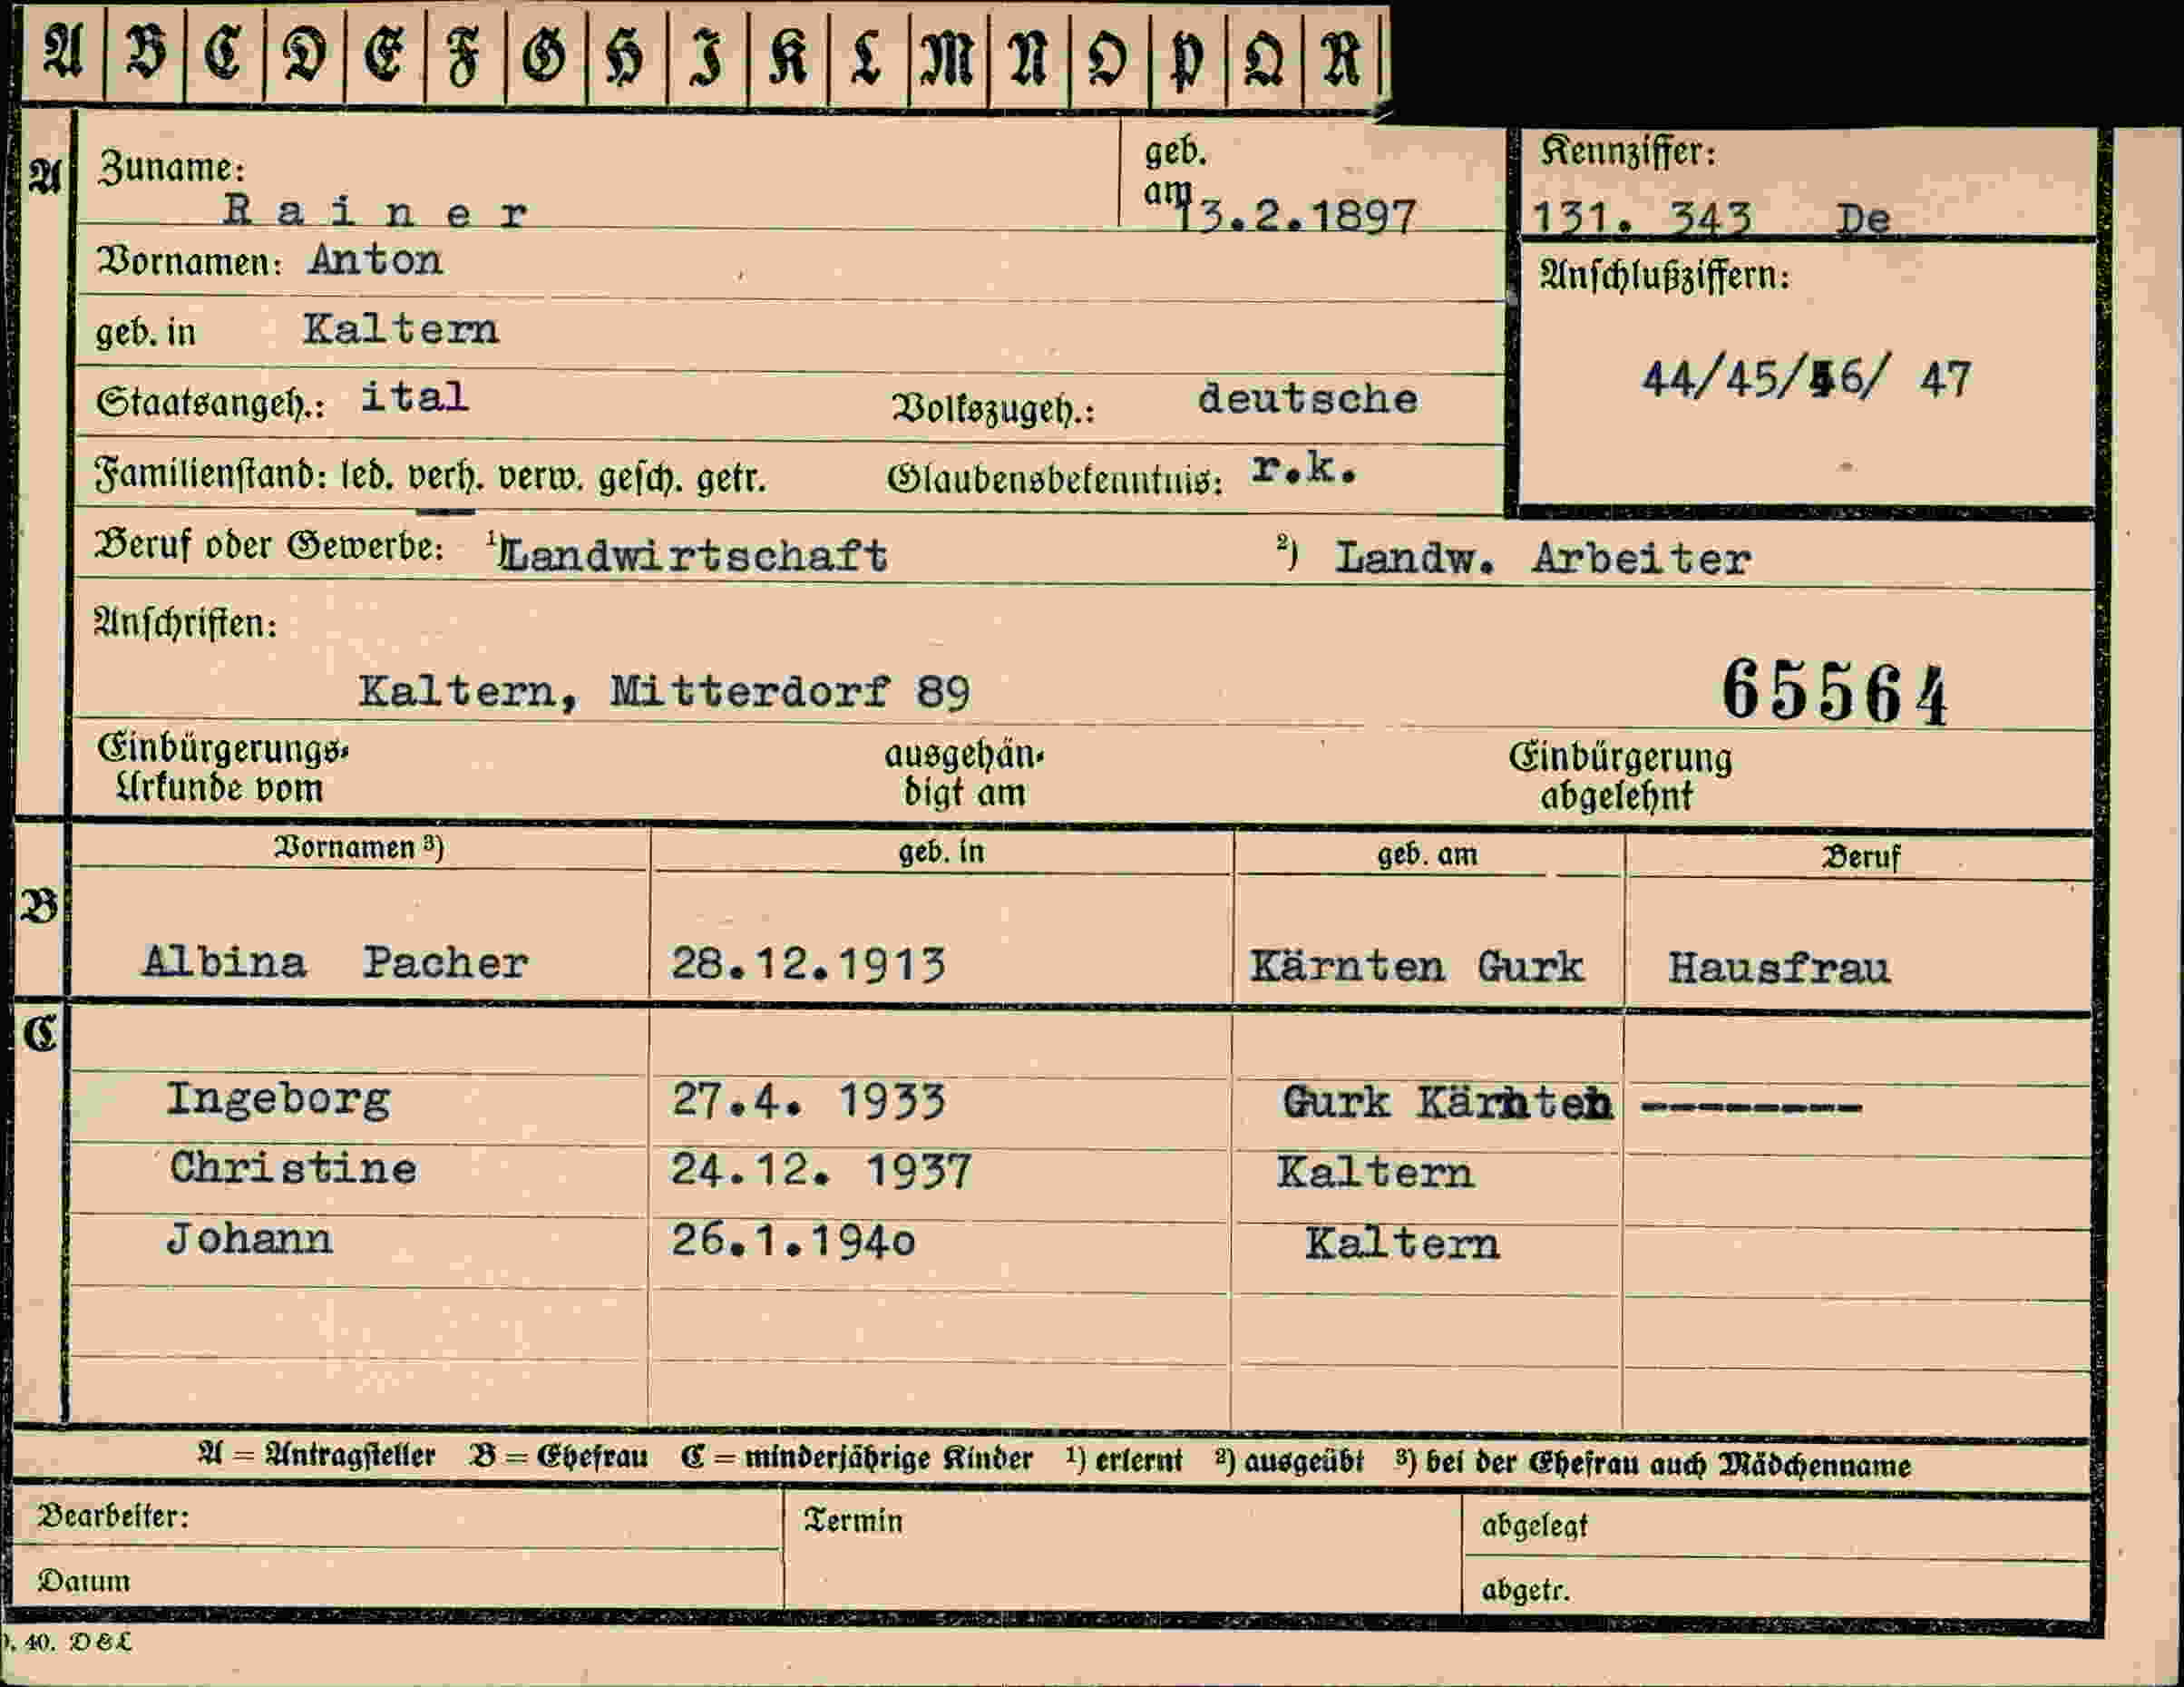 A B C D E F G H I K L M N O P Q R
A Zuname: Rainer geb. am 13.2.1897 Kennziffer: 131. 343 De
Vornamen: Anton Anschlußziffern:
geb. in Kaltern 44/45/46/ 47
Staatsangeh.: ital Volkszugeh.: deutsche
Familienstand: led. verh. verw. gesch. getr. Glaubensbekenntnis: r.k.
Beruf oder Gewerbe: ¹)Landwirtschaft ²) Landw. Arbeiter
Anschriften:
Kaltern, Mitterdorf 89 65564
Einbürgerungs- ausgehän- Einbürgerung
Urkunde vom digt am abgelehnt
Vornamen ³) geb. in geb. am Beruf
B
Albina Pacher 28.12.1913 Kärnten Gurk Hausfrau
C
Ingeborg 27.4. 1933 Gurk Kärnten --------
Christine 24.12. 1937 Kaltern
Johann 26.1.194o Kaltern
A = Antragsteller B = Ehefrau C = minderjährige Kinder ¹) erlernt ²) ausgeübt ³) bei der Ehefrau auch Mädchenname
Bearbeiter: Termin abgelegt
Datum abgetr.
40. D & L